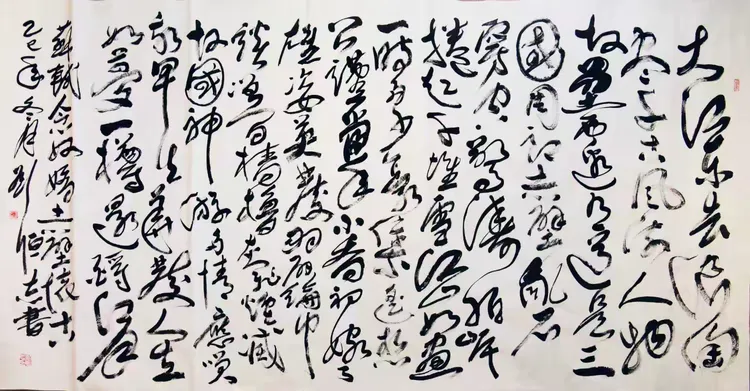 大江東去浪淘
尽千古風流人物
故壘西邊人道是三
國周郎赤壁亂石
穿空驚濤拍岸
捲起千堆雪江山如畫
一時多少豪傑遙想
公瑾當年小喬初嫁了
雄姿英發羽扇綸巾
談笑間檣櫓灰飛煙滅
故國神遊多情應笑
我早生華髮人生
如夢一樽還酹江月
蘇軾念奴嬌赤壁懷古
乙巳年冬月劉恒志書